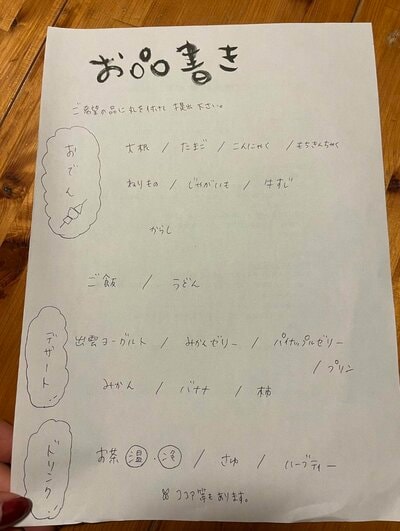 お品書き
ご希望の品に丸を付けて提出下さい。
おでん
大根 / たまご / こんにゃく / もちきんちゃく
ねりもの / じゃがいも / 牛すじ
からし
ご飯 / うどん
デザート
出雲ヨーグルト / みかんゼリー / パイナップルゼリー
/ プリン
みかん / バナナ / 柿
ドリンク
お茶 温・冷 / さゆ / ハーブティー
※ ココア等もあります。